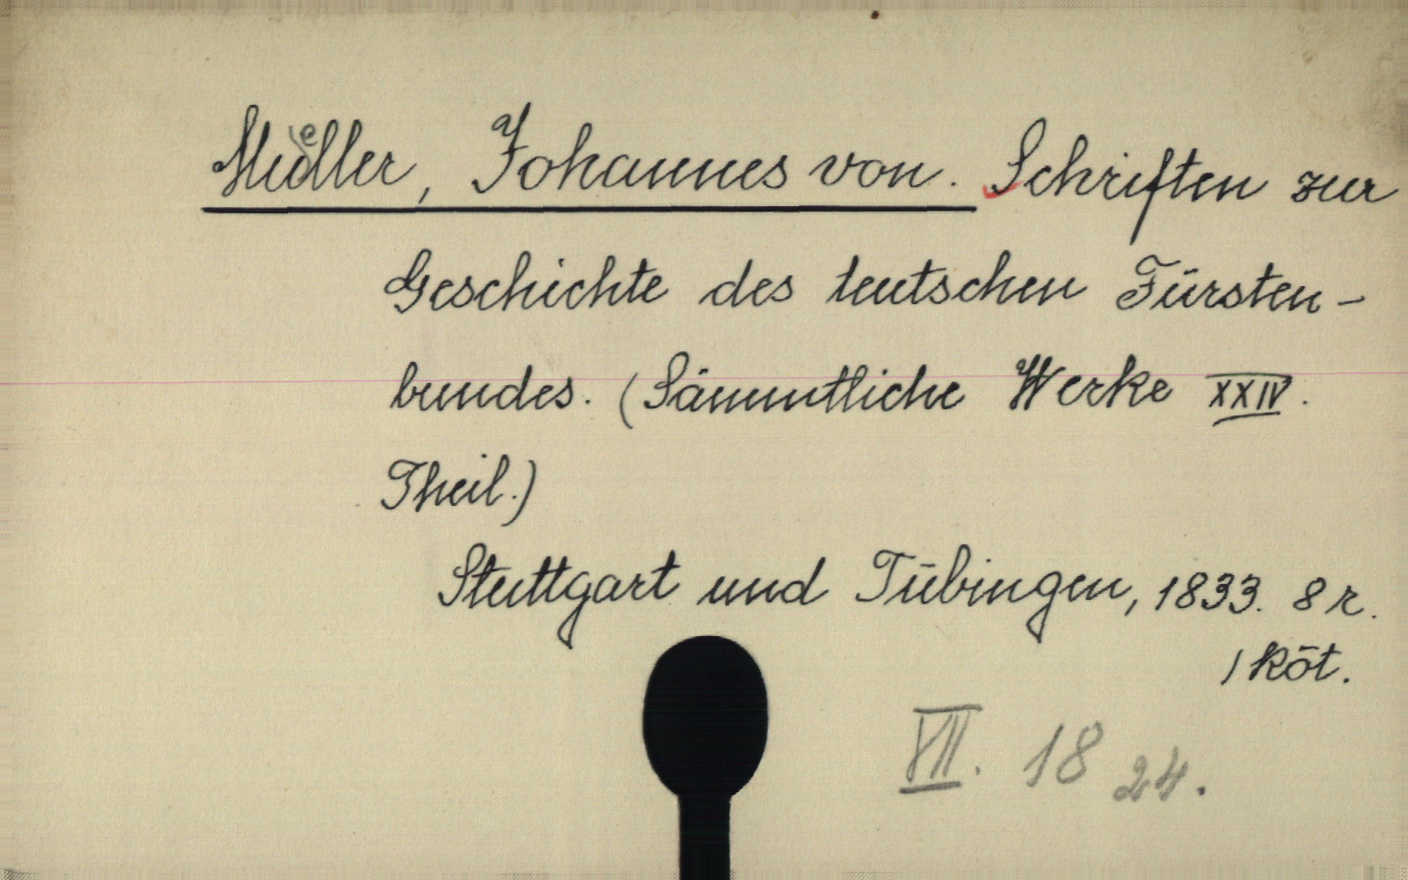 Mueller, Johannes von. Schriften zur
Geschichte des teutschen Fürsten-
bundes. (Sämmtliche Werke XXIV.
Theil.)
Stuttgart und Tübingen, 1833. 8 r.
1 köt.
VII. 18 24.